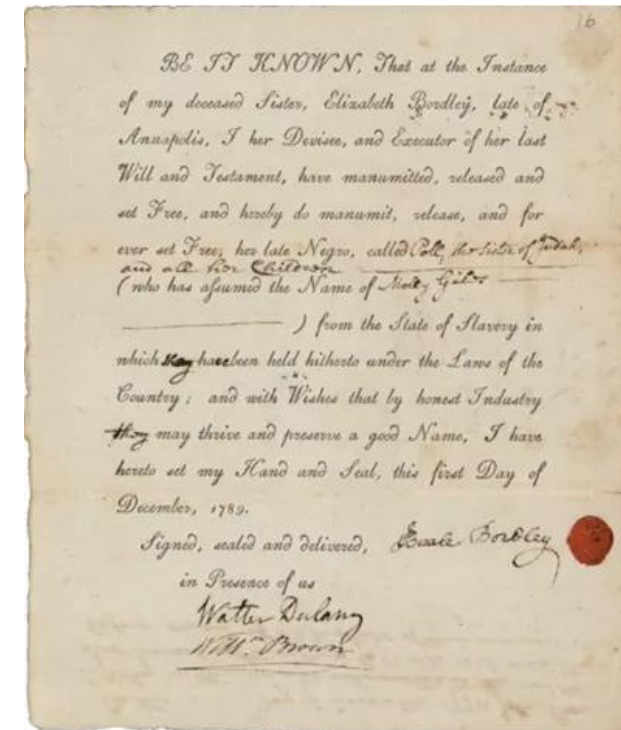 16
BE IT KNOWN, That at the Instance
of my deceased Sister, Elizabeth Bordley, late of
Annapolis, I her Devisee, and Executor of her last
Will and Testament, have manumitted, released and
set Free, and hereby do manumit, release, and for
ever set Free; her late Negro, called Poll, the Sister of Judah,
and all her Children
(who has assumed the Name of Molly Giles
) from the State of Slavery in
which they have been held hitherto under the Laws of the
Country; and with Wishes that by honest Industry
they may thrive and preserve a good Name, I have
hereto set my Hand and Seal, this first Day of
December, 1789.
Signed, sealed and delivered,
Beale Bordley
in Presence of us
Walter Dulany
Willm Brown